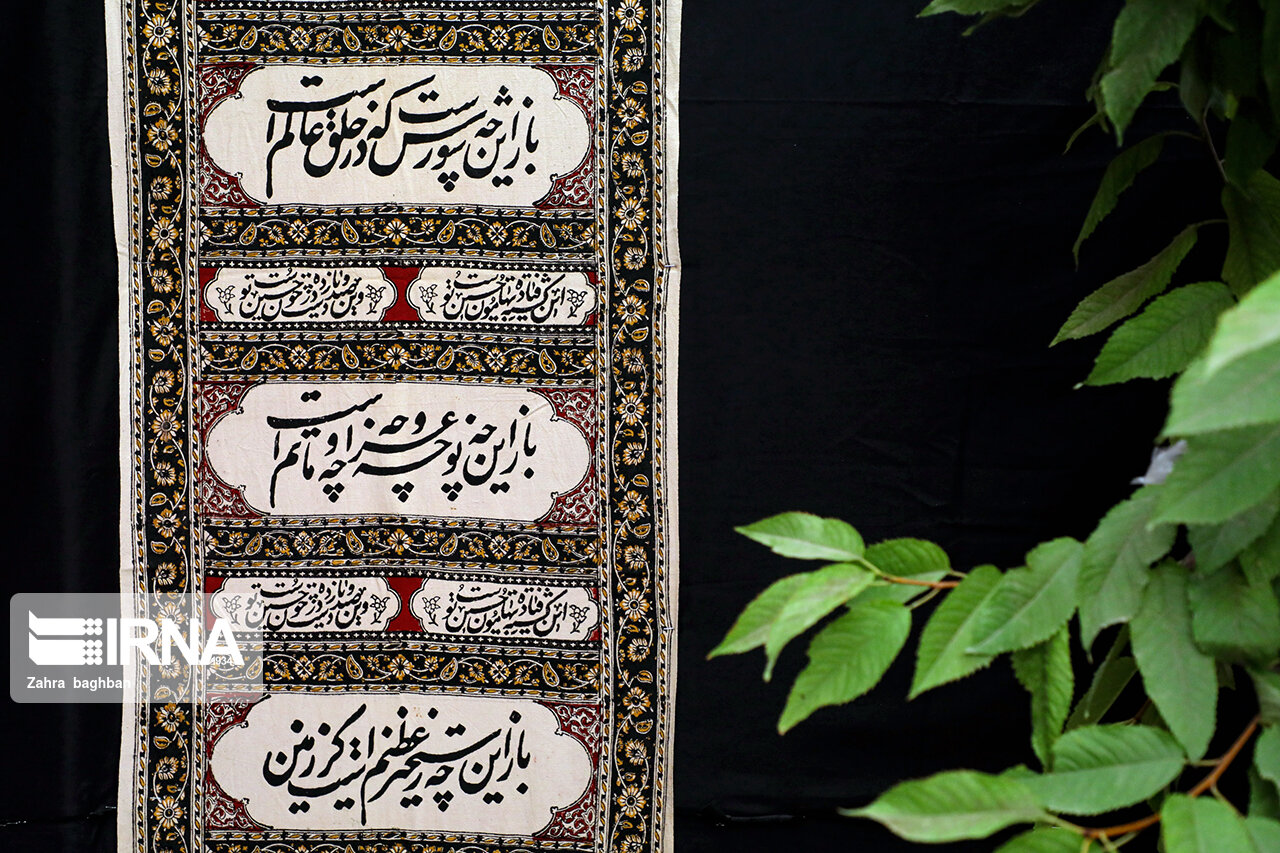 باز این چه شورش است که در خلق عالم است
این کشته فتاده به هامون حسین توست
وین صید دست و پا زده در خون حسین توست
باز این چه نوحه و چه عزا و چه ماتم است
این کشته فتاده به هامون حسین توست
وین صید دست و پا زده در خون حسین توست
باز این چه رستخیز عظیم است کز زمین
IRNA
Zahra baghban